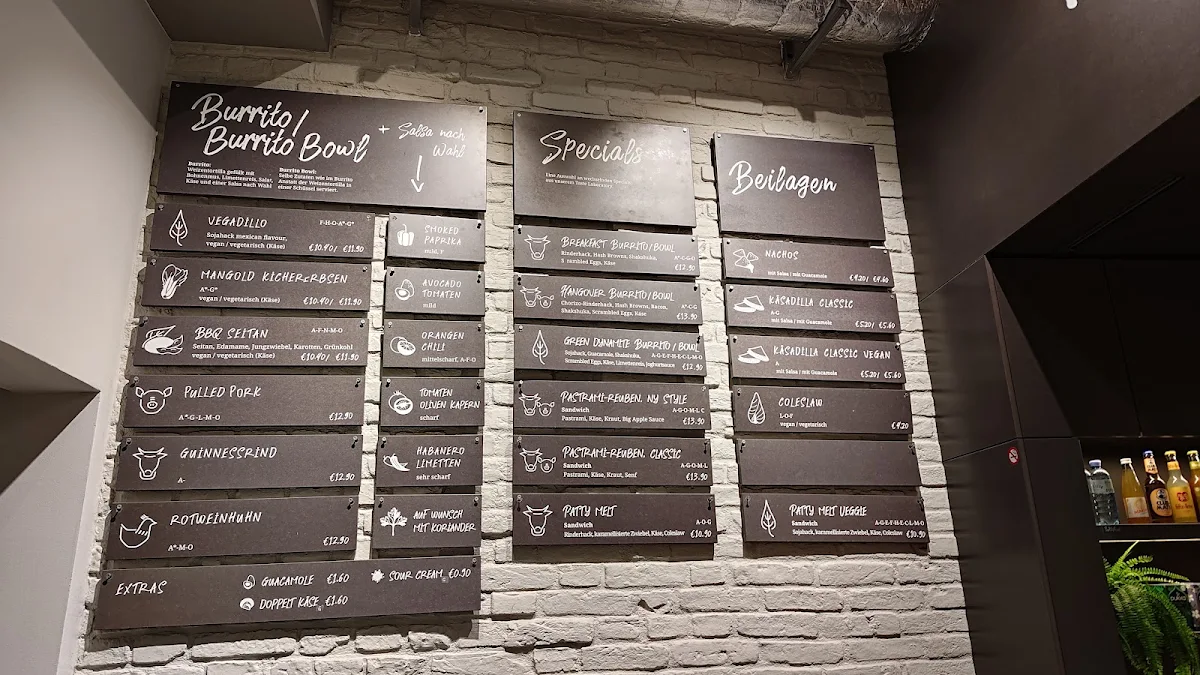 Burrito/
Burrito Bowl
+ Salsa nach
Wahl
Burrito:
Weizentortilla gefüllt mit
Bohnenmus, Limettenreis, Salat,
Käse und einer Salsa nach Wahl
Burrito Bowl:
Selbe Zutaten wie im Burrito
Anstatt der Weizentortilla in
einer Schüssel serviert.
VEGADILLO F-H-O-A*-G*
Sojahack mexican flavour,
vegan / vegetarisch (Käse) €10.40/ €11.50
MANGOLD KICHERERBSEN
A*-G*
vegan / vegetarisch (Käse) €10.40/ €11.90
BBQ SEITAN A-F-N-M-O
Seitan, Edamame, Jungzwiebel, Karotten, Grünkohl
vegan / vegetarisch (Käse) €10.40/ €11.90
PULLED PORK
A*-G-L-M-O €12.90
GUINNESSRIND
A- €12.90
ROTWEINHUHN
A*-M-O €12.90
EXTRAS
GUACAMOLE €1.60
SOUR CREAM €0.90
DOPPELT KÄSE €1.60
SMOKED
PAPRIKA
mild,
AVOCADO
TOMATEN
mild
ORANGEN
CHILI
mittelscharf, A-F-O
TOMATEN
OLIVEN KAPERN
scharf
HABANERO
LIMETTEN
sehr scharf
AUF WUNSCH
MIT KORIANDER
Specials
Eine Auswahl an wechselnden Specials
aus unserem Taste Laboratory
BREAKFAST BURRITO/BOWL
Rinderhack, Hash Browns, Shakshuka, A*-C-G-O
Scrambled Eggs, Käse €12.90
HANGOVER BURRITO/BOWL
Chorizo-Rinderhack, Hash Browns, Bacon, A*-C-G
Shakshuka, Scrambled Eggs, Käse €13.90
GREEN DYNAMITE BURRITO / BOWL
Sojahack, Guacamole, Shakshuka, A-G-E-F-H-E-C-L-M-O
Scrambled Eggs, Käse, Limettenreis, Joghurtsauce €12.90
PASTRAMI-REUBEN. NY STYLE
Sandwich A-G-O-M-L C
Pastrami, Käse, Kraut, Big Apple Sauce €13.90
PASTRAMI-REUBEN. CLASSIC
Sandwich A-G-O-M-L
Pastrami, Käse, Kraut, Senf €13.90
PATTY MELT
Sandwich A-O-G
Rinderhack, karamellisierte Zwiebel, Käse, Coleslaw €10.90
Beilagen
NACHOS
mit Salsa / mit Guacamole €4.20/ €4.60
KÄSADILLA CLASSIC
A-G
mit Salsa / mit Guacamole €5.20/ €5.60
KÄSADILLA CLASSIC VEGAN
A
mit Salsa / mit Guacamole €5.20/ €5.60
COLESLAW
L-O-F
vegan / vegetarisch €4.20
PATTY MELT VEGGIE
Sandwich A-G-E-F-H-E-C-L-M-O
Sojahack, karamellisierte Zwiebel, Käse, Coleslaw €10.90